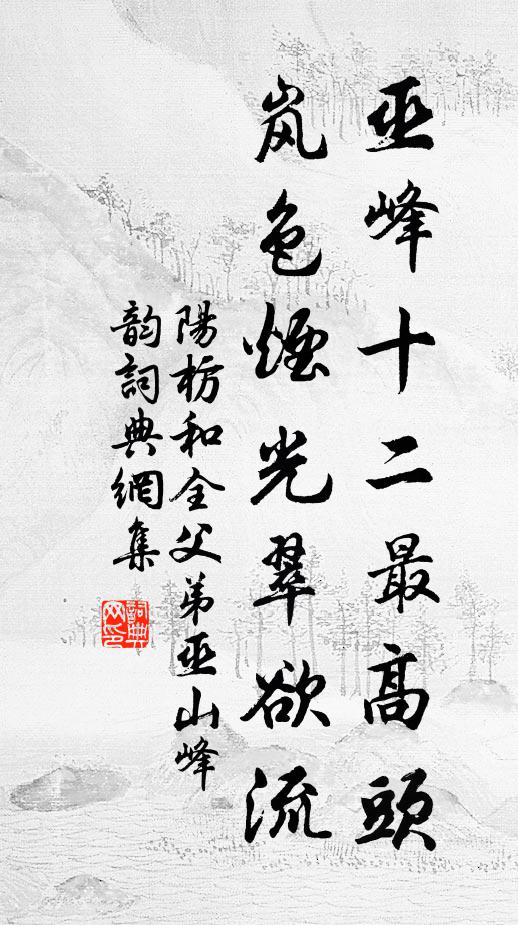 巫峰十二最高頭
岚色煙光翠欲流
陽枋和全父弟巫山峰
韵詞典網集
詞典
网印